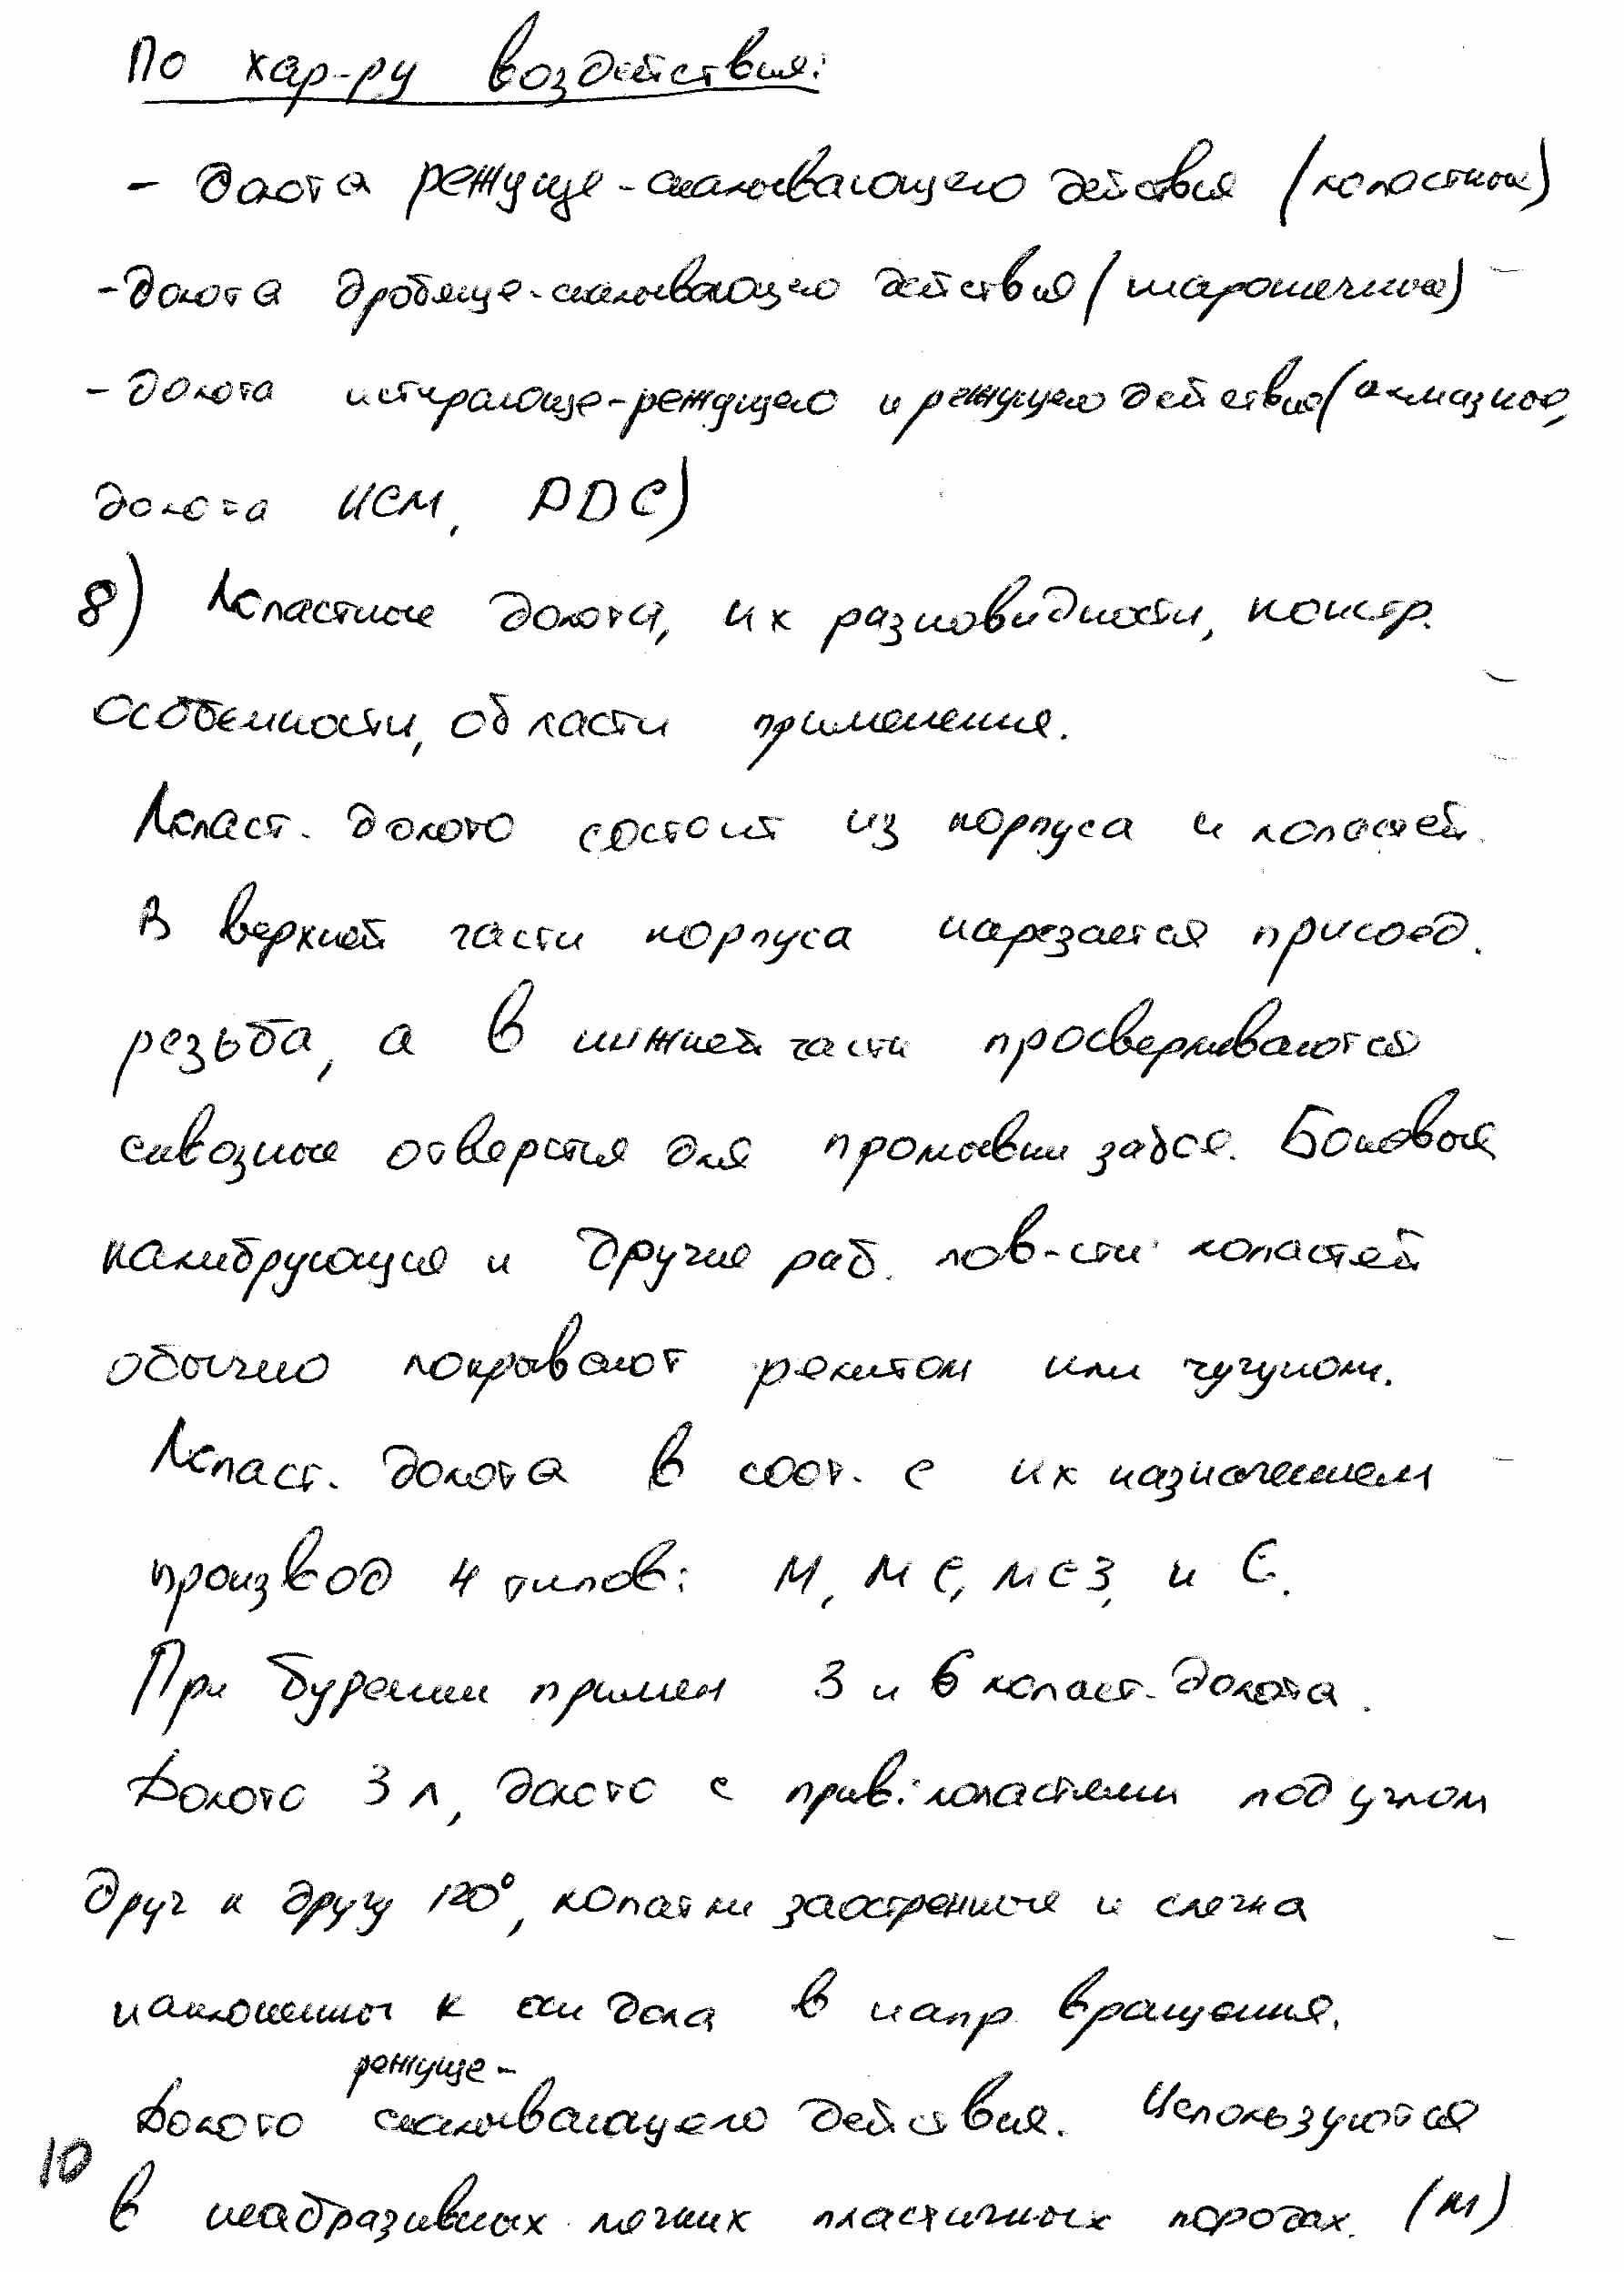 По хар-ру воздействия:
- долота режуще-скалывающего действия (лопастные)
- долота дробяще-скалывающего действия (шарошечные)
- долота истирающе-режущего и режущего действия (алмазные,
долота ИСМ, PDC)
8) Лопастные долота, их разновидности, констр.
особенности, области применения.
Лопаст. долото состоит из корпуса и лопастей.
В верхней части корпуса нарезается присоед.
резьба, а в нижней части просверливаются
сквозные отверстия для промывки забоя. Боковые
калибрующие и другие раб. пов-сти лопастей
обычно покрывают релитом или чугуном.
Лопаст. долота в соот. с их назначением
производ 4 типов: М, МС, МСЗ, и С.
При бурении примен 3 и 6 лопаст. долота.
Долото 3л, долото с прив. лопастями под углом
друг к другу 120°, лопатки заостренные и слегка
наклонены к оси дола в напр. вращения.
Долото режуще-скалывающего действия. Используются
в неабразивных мягких пластичных породах. (М)
10